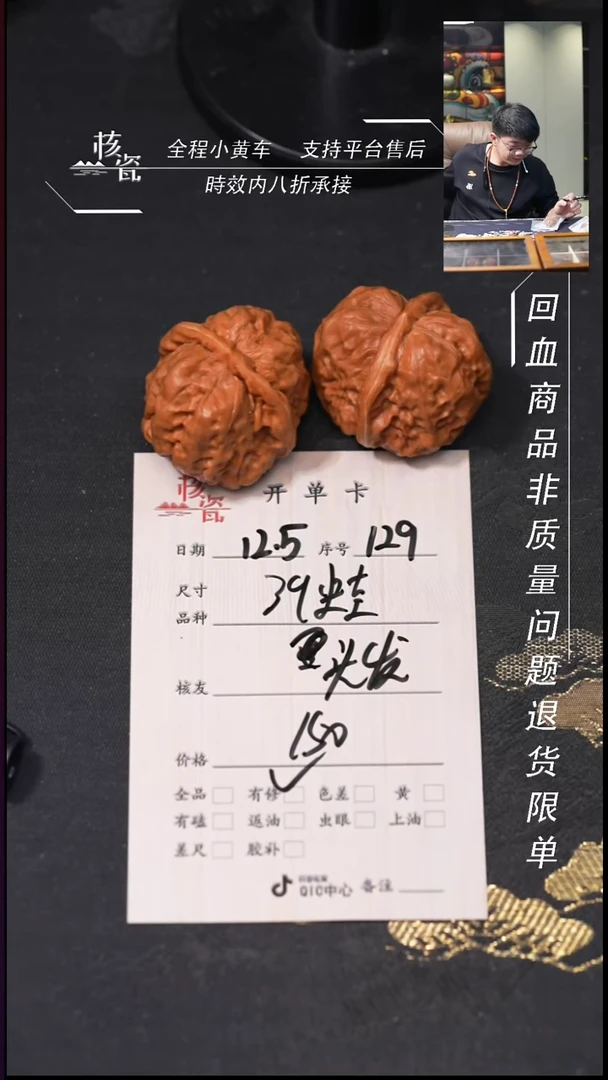 核瓷
全程小黄车 支持平台售后
時效内八折承接
回血商品非质量问题退货限单
核瓷
开单卡
日期 12.5 序号 129
尺寸 39
品种
头发
核友
150
价格
全品 有修 色差 黄
有磕 返油 虫眼 上油
差尺 胶补
QIC中心 备注